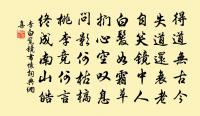 得道無古今
失道還衰老
自笑鏡中人
白髮如霜草
捫心空嘆息
問影何枯槁
桃李竟何言
終成南山皓
李白覽鏡書懷詞典網